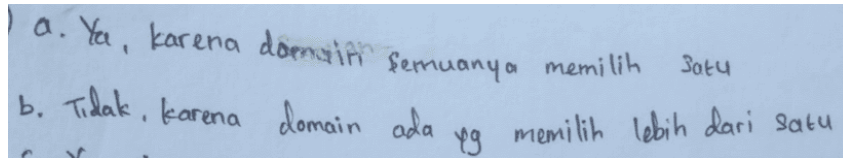 a. Ya, karena domain semuanya memilih satu
b. Tidak, karena domain ada yg memilih lebih dari satu